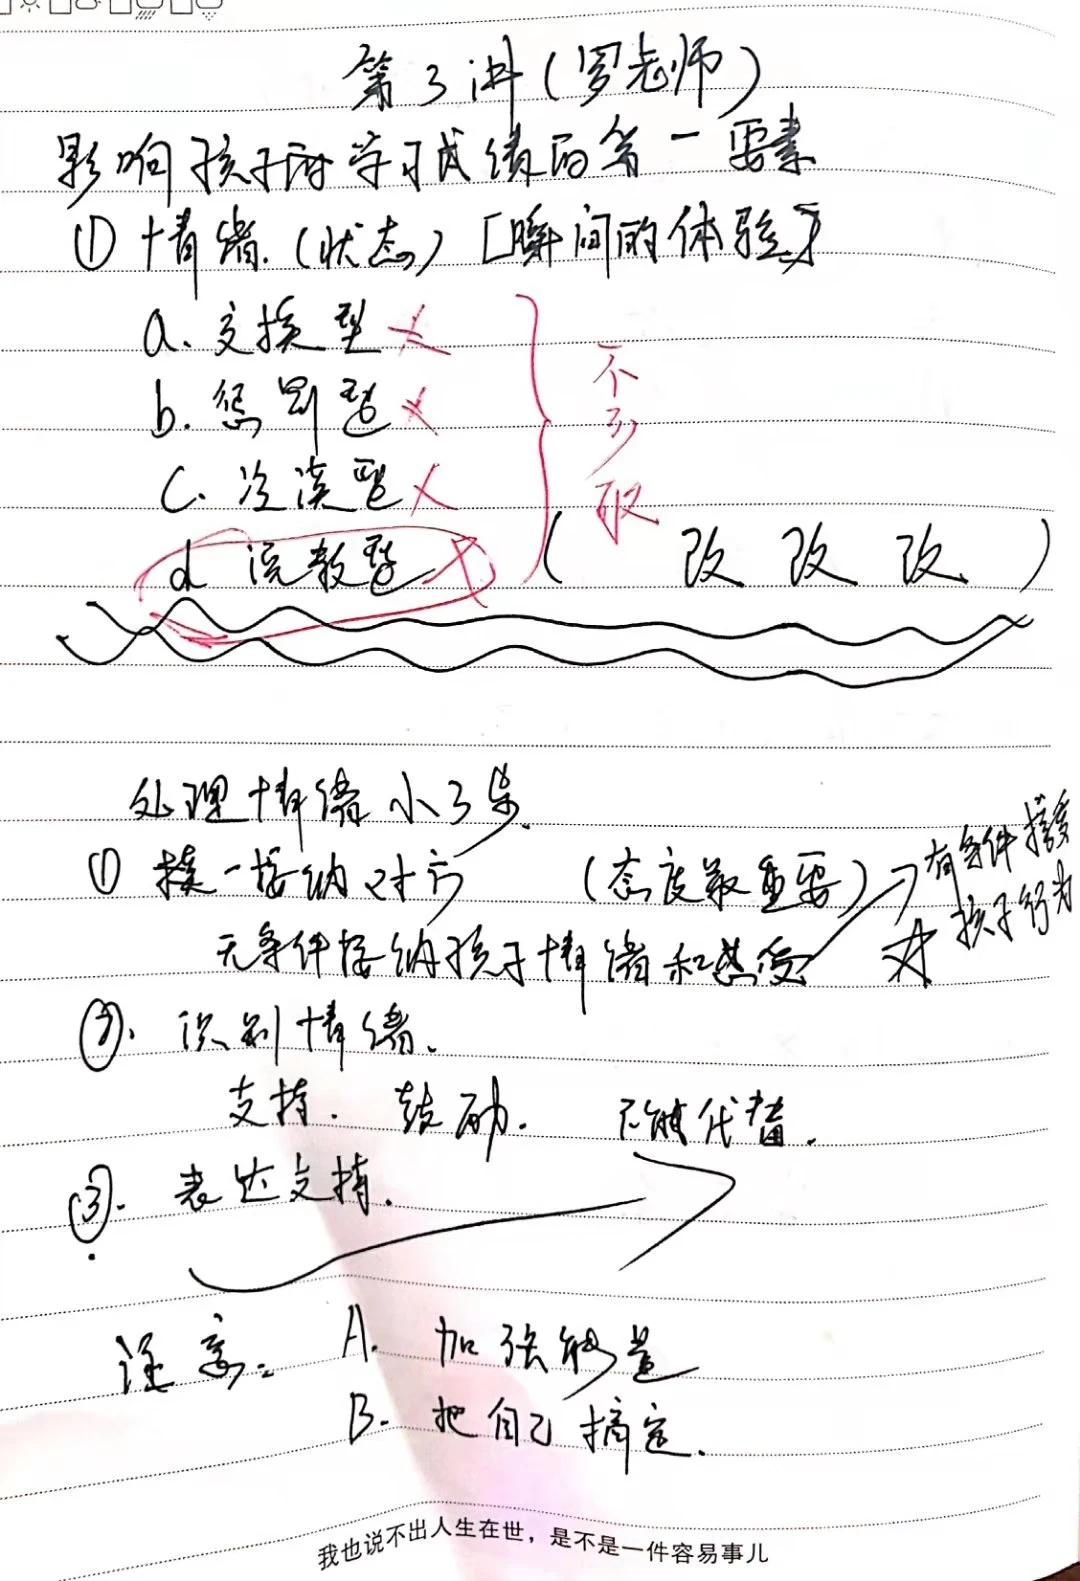 第3讲(罗老师)
影响孩子学习成绩的第一要素
① 情绪.(状态)[瞬间的体验]
a. 交换型 ×
b. 惩罚型 ×
c. 冷漠型 ×
d 说教型 ×
不可取
( 改 改 改 )
处理情绪小3步.
① 接纳对方 (态度最重要)
有条件接受
孩子行为
无条件接纳孩子情绪和感受
②. 识别情绪.
支持. 鼓励. 不能代替.
③. 表达支持.
注意: A. 加强能量
B. 把自己搞定.
我也说不出人生在世，是不是一件容易事儿